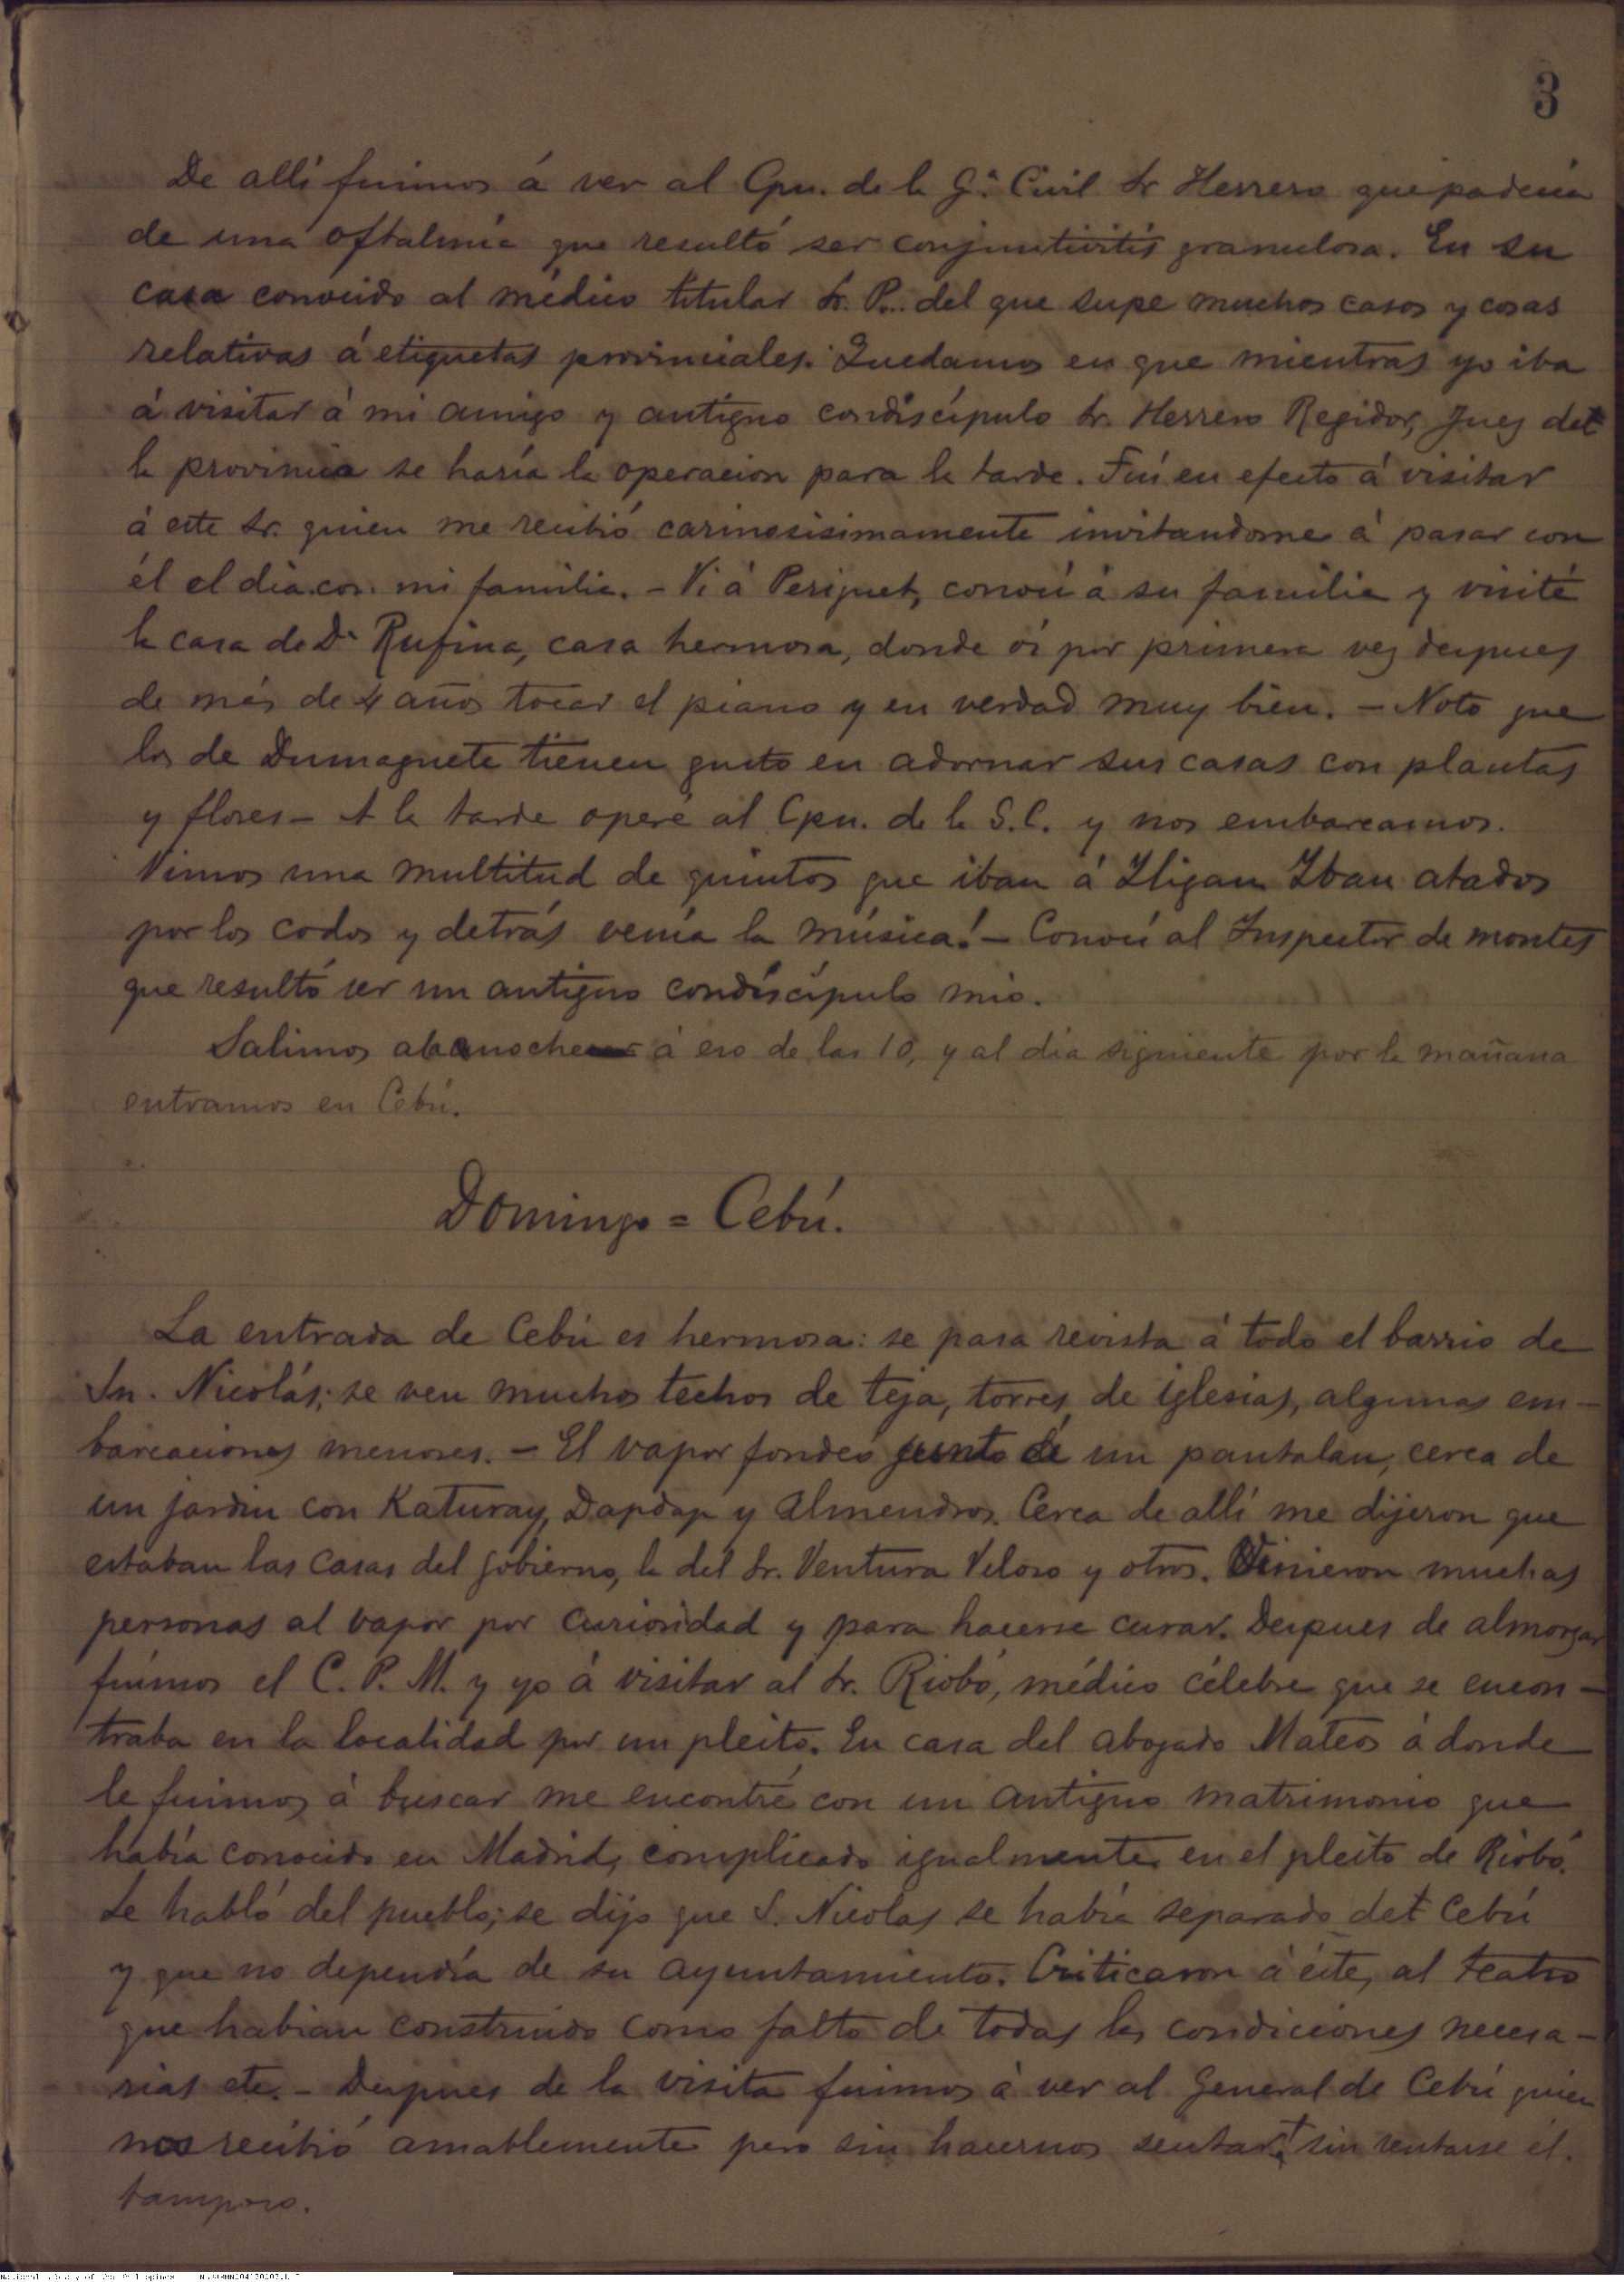 3
De allí fuimos á ver al Cpn. de la G.ª Civil Sr Herrero que padecía
de una oftalmía que resultó ser conjuntivitis granulosa. En su
casa conocido al médico titular Sr. P... del que supe muchos casos y cosas
relativas á etiquetas provinciales. Quedamos en que mientras yo iba
á visitar á mi amigo y antiguo condiscípulo Sr. Herrero Regidor, Juez de
la provincia se haría la operacion para la tarde. Fuí en efecto á visitar
á este Sr. quien me recibió cariñosisimamente invitandome á pasar con
él el dia con mi familia. - Vi á Periquet, conocí á su familia y visité
la casa de D.ª Rufina, casa hermosa, donde oí por primera vez despues
de más de 4 años tocar el piano y en verdad muy bien. - Noto que
los de Dumaguete tienen gusto en adornar sus casas con plantas
y flores - A la tarde operé al Cpn. de la S.C. y nos embarcamos.
Vimos una multitud de quintos que iban á Iligan Iban atados
por los codos y detrás venía la música! - Conocí al Inspector de montes
que resultó ser un antiguo condiscípulo mio.
Salimos al anochecer á eso de las 10, y al dia siguiente por la mañana
entramos en Cebú.
Domingo = Cebú.
La entrada de Cebú es hermosa: se pasa revista á todo el barrio de
Sn. Nicolás; se ven muchos techos de teja, torres de iglesias, algunas em-
barcaciones menores. - El vapor fondeó junto á un pantalan, cerca de
un jardin con Katuray, Dapdap y Almendros. Cerca de allí me dijeron que
estaban las casas del gobierno, la del Sr. Ventura Veloso y otros. Vinieron muchas
personas al vapor por curiosidad y para hacerse curar. Despues de almorzar
fuimos el C. P. M. y yo á visitar al Sr. Riobó, médico célebre que se encon-
traba en la localidad por un pleito. En casa del abogado Mateos á donde
le fuimos á buscar me encontré con un antiguo matrimonio que
había conocido en Madrid, complicado igualmente en el pleito de Riobó.
Se habló del pueblo; se dijo que S. Nicolas se había separado de Cebú
y que no dependía de su ayuntamiento. Criticaron á éste, al teatro
que habian construido como falto de todas las condiciones necesa-
rias etc. - Despues de la visita fuimos á ver al General de Cebú quien
nos recibió amablemente pero sin hacernos sentar sin sentarse él
tampoco.